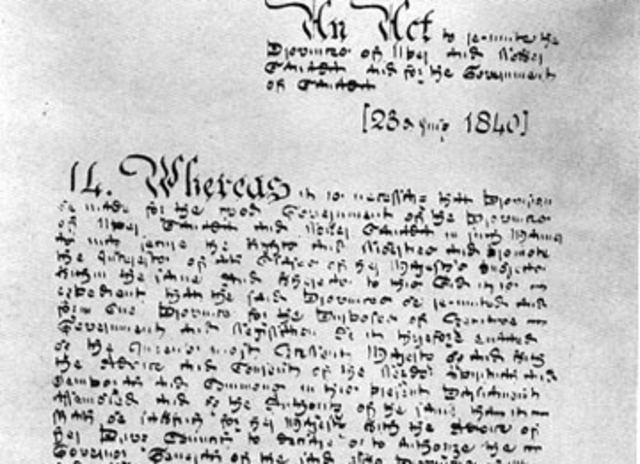 An Act to re-unite the
Provinces of Upper and Lower
Canada and for the Government
of Canada
[23d July 1840]
14. Whereas it is necessary that Provision
be made for the good Government of the Provinces
of Upper Canada and Lower Canada in such Manner
as may secure the Rights and Liberties and promote
the Interests of all Classes of Her Majesty's Subjects
within the same And whereas to this End it is
expedient that the said Provinces be re-united and
form One Province for the Purposes of Executive
Government and Legislation Be it therefore enacted
by the Queen's most Excellent Majesty by and with
the Advice and Consent of the Lords Spiritual and
Temporal and Commons in this present Parliament
Assembled and by the Authority of the same That it
shall be lawful for Her Majesty with the Advice of
Her Privy Council to declare or to authorize the
Governor General of the said